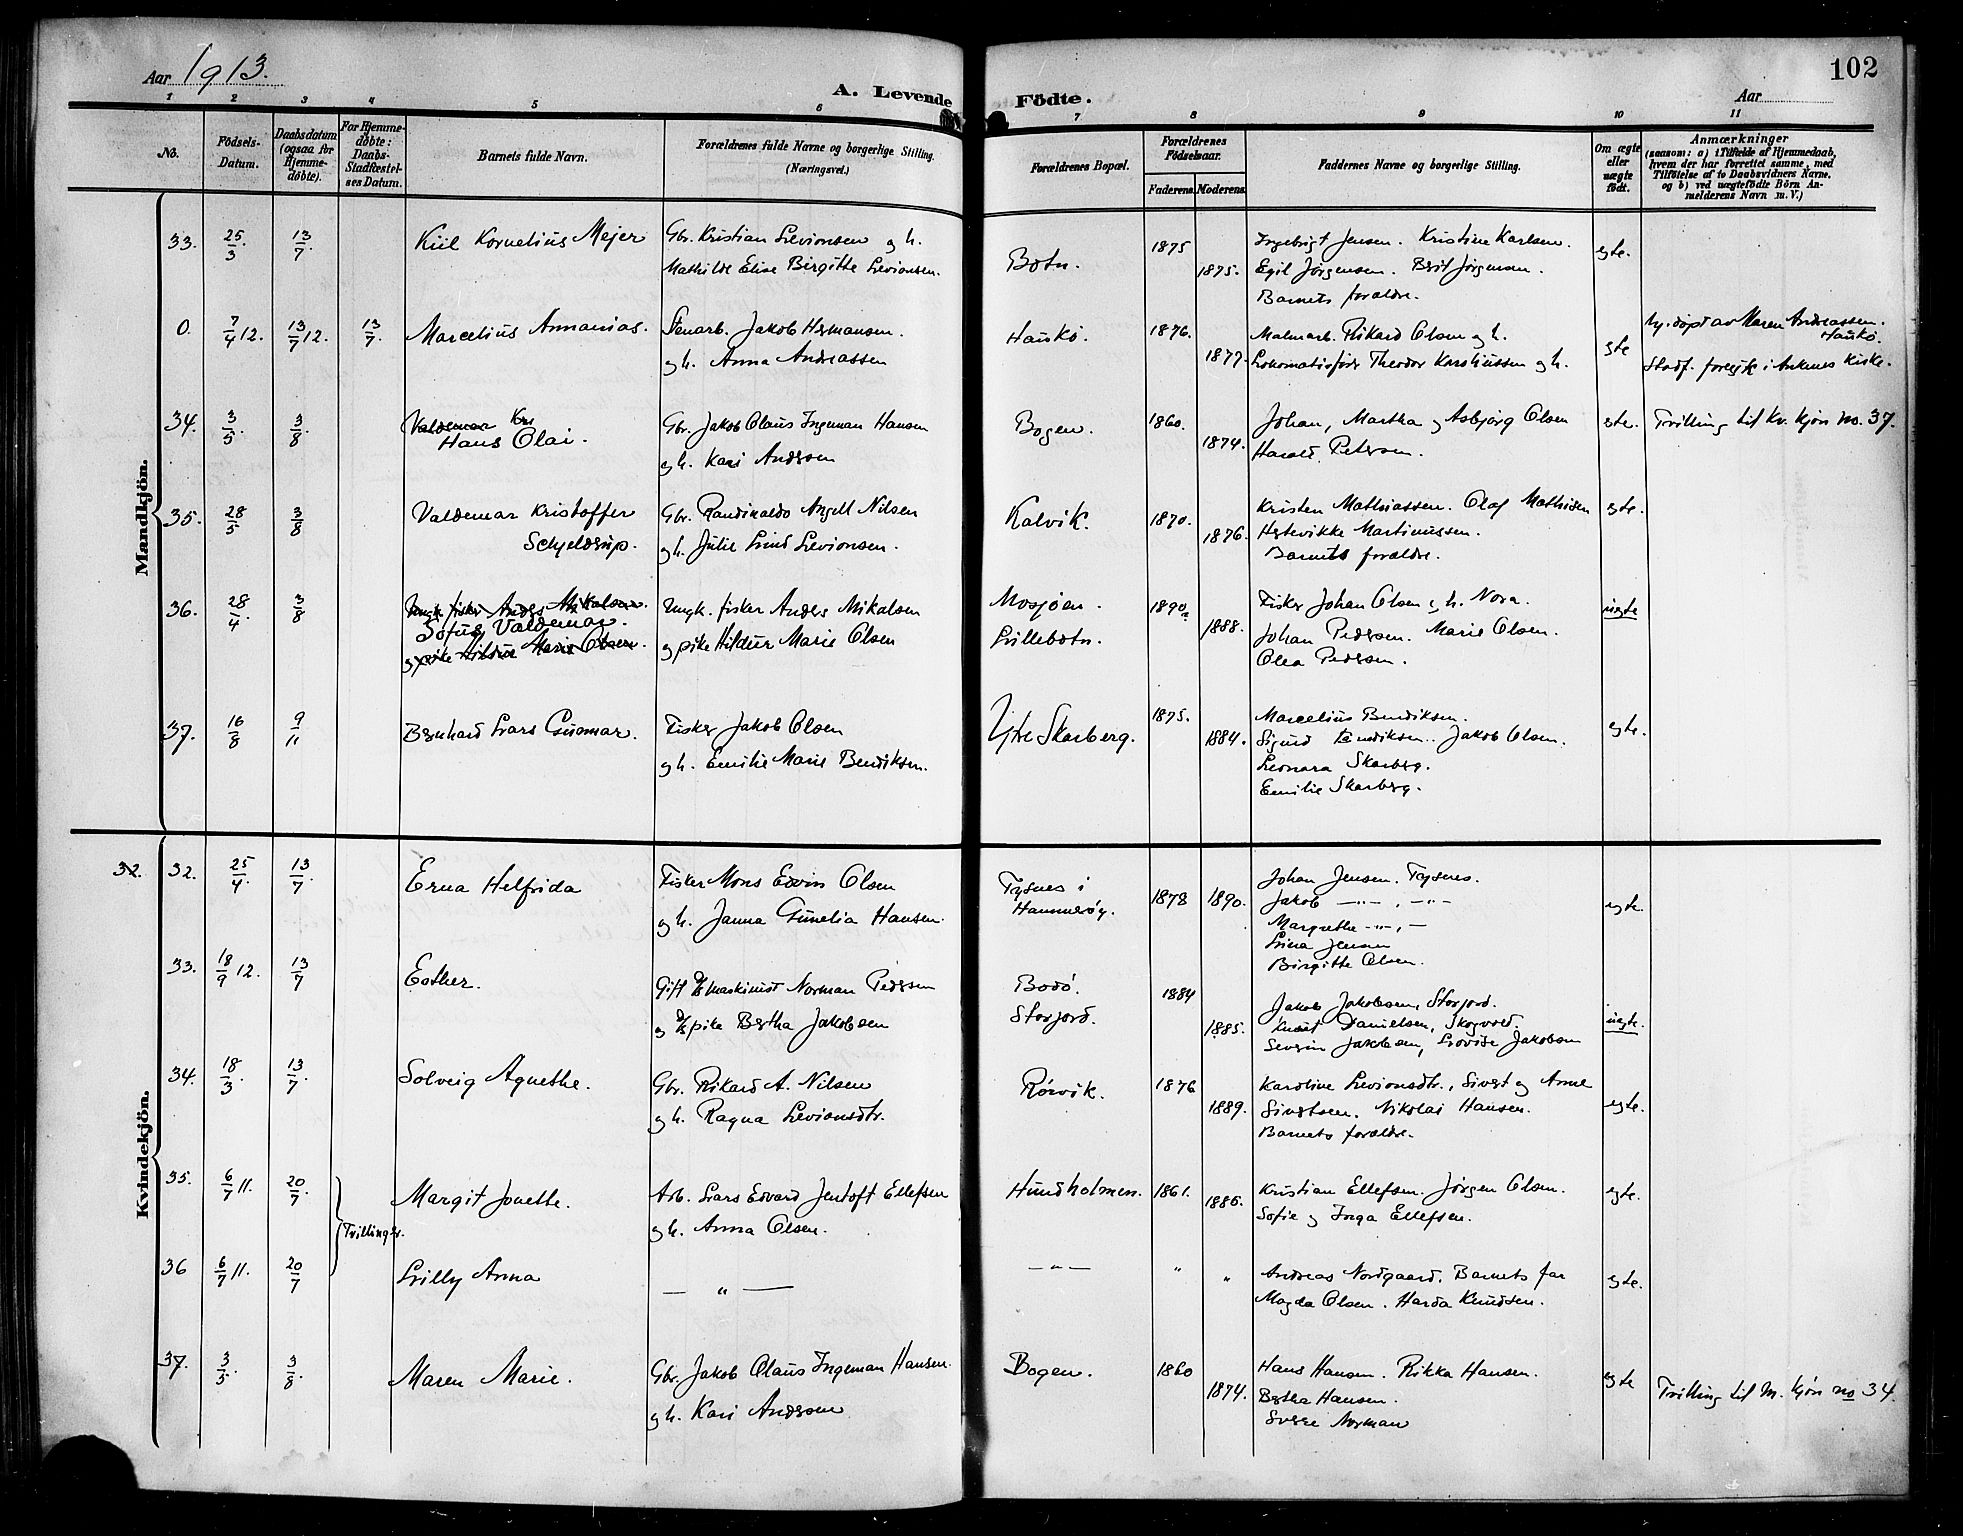 Aar 1913.
A. Levende Födte.
102
Aar
1 2 3 4 5 6 7 8 9 10 11
No.
Födsels-Datum.
Daabsdatum (ogsaa for Hjemme-döbte).
For Hjemme-döbte: Daabs-Stadfæstel-ses Datum.
Barnets fulde Navn.
Forældrenes fulde Navne og borgerlige Stilling. (Næringsvei.)
Forældrenes Bopæl.
Forældrenes Födselsaar.
Faderens. Moderens.
Faddernes Navne og borgerlige Stilling.
Om ægte eller uægte födt.
Anmærkninger
(saasom: a) i Tilfælde af Hjemmedaab, hvem der har forrettet samme, med Tilföielse af to Daabsvidners Navne, og b) ved uægtefödte Börn An-melderens Navn m. V.)
Mandkjön.
33. 25/3. 13/7. Kiil Kornelius Mejer Gbr. Kristian Levionsen og h. Botn. 1875 Ingebrigt Jensen. Kristine Karlsen. egte.
Mathilde Elise Birgitte Levionsen. 1875. Egil Jörgensen. Brit Jörgensen.
Barnets forældre.
0. 7/4 12. 13/7 12. 13/7. Marcelius Annanias. Stenarb. Jakob Hermansen. Haukö. 1876. Malmarb. Rikard Olsen og h. gte Hj. döpt av Maren Andreassen. Haukö.
og h. Anna Andreassen 1877. Lokomotivförer Theodor Karoliussen og h. Stadf. foregik i Ankenes Kirke.
34. 3/5. 3/8. Valdemar Kri Gbr. Jakob Olaus Ingeman Hansen Bogen. 1860. Johan, Martha og Asbjörg Olsen gte. Tvilling til Kv. kjön no. 37.
Hans Olai. og h. Kari Andersen 1874. Harald Petersen.
35. 28/5 3/8 Valdemar Kristoffer Gbr. Randinaldo Angell Nilsen Kalvik. 1870. Kristen Mathiassen. Olaf Mathisen egte.
Schjelderup. og h. Julie Lind Levionsen. 1876. Hertevikke Martinussen.
Barnets forældre.
36. 28/4. 3/8 Ungk. fisker Anders Mikalsen. Ungk. fisker Anders Mikalsen Mosjöen. 1890. Fisker Johan Olsen og h. Nora. uegte
Sofus Valdemar.
og pike Hildur Marie Olsen. og pike Hildur Marie Olsen Lillebotn. 1888. Johan Pedersen. Marie Olsen.
Olea Pedersen.
37. 16/8 9/11 Bernhard Lars Gunnar. Fisker Jakob Olsen Ytre Skarberg. 1875. Marcelius Bendiksen. egte.
og h. Emilie Marie Bendiksen. 1884. Sigurd Bendiksen. Jakob Olsen.
Leonara Skarberg.
Emilie Skarberg.
Kvindekjön.
32. 32. 25/4. 13/7. Erna Helfrida Fisker Mons Edvin Olsen Tysnes i Hammeröy. 1878 1890. Johan Jensen. Tysnes. egte.
og h. Janna Gunelia Hansen. Jakob —"— , —"—
Margrethe —"—, —
Lina Jensen
Birgitte Olsen.
33. 18/9 12. 13/7 Esther. Gift maskinist Norman Pedersen Bodö. 1884 Jakob Jakobsen, Storjord. uegte.
og pike Bertha Jakobsen Storjord. 1885. Knut Danielsen, Skogvold.
Severin Jakobsen, Lovise Jakobsen
34. 18/3. 13/7. Solveig Agnethe. Gbr. Rikard A. Nilsen Rörvik. 1876 Karoline Levionsdtr., Sivert og Anne egte.
og h. Ragna Levionsdtr. 1889. Sivertsen. Nikolai Hansen.
Barnets forældre.
35. 6/7 11. 20/7. Margit Jonette. Arb. Lars Edvard Jentoft Ellefsen Hundholmen. 1861. Kristian Ellefsen. Jörgen Olsen. egte.
(Tvillinger. og h. Anna Olsen. 1886. Sofie og Inga Ellefsen.
36 6/7 11. 20/7 Lilly Anna — " — —"— " " Andreas Nordgaard. Barnets far egte.
Magda Olsen. Harda Knudsen.
37. 3/5. 3/8. Maren Marie. Gbr. Jakob Olaus Ingeman Hansen. Bogen. 1860 Hans Hansen. Rikka Hansen. egte Tvilling til M. kjön no 34.
og h. Kari Andersen 1874. Bertha Hansen.
Sverre Norman